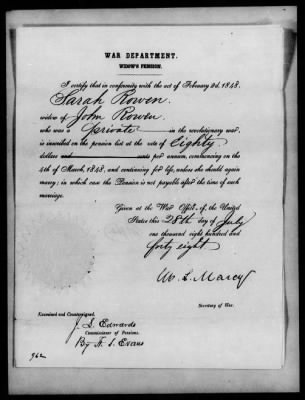 WAR DEPARTMENT.
WIDOW'S PENSION.
I certify that in conformity with the act of February 2d, 1848,
Sarah Rowen,
widow of John Rowen
who was a private in the revolutionary war,
is inscribed on the pension list at the rate of Eighty
dollars and cents per annum, commencing on the
4th of March, 1848, and continuing for life, unless she should again
marry; in which case the Pension is not payable after the time of such
marriage.
Given at the War Office, of the United
States this 28th day of July
one thousand eight hundred and
forty eight
W. L. Marcy
Secretary of War.
Examined and Countersigned.
J. L. Edwards
Commissioner of Pensions.
By A. S. Evans
962